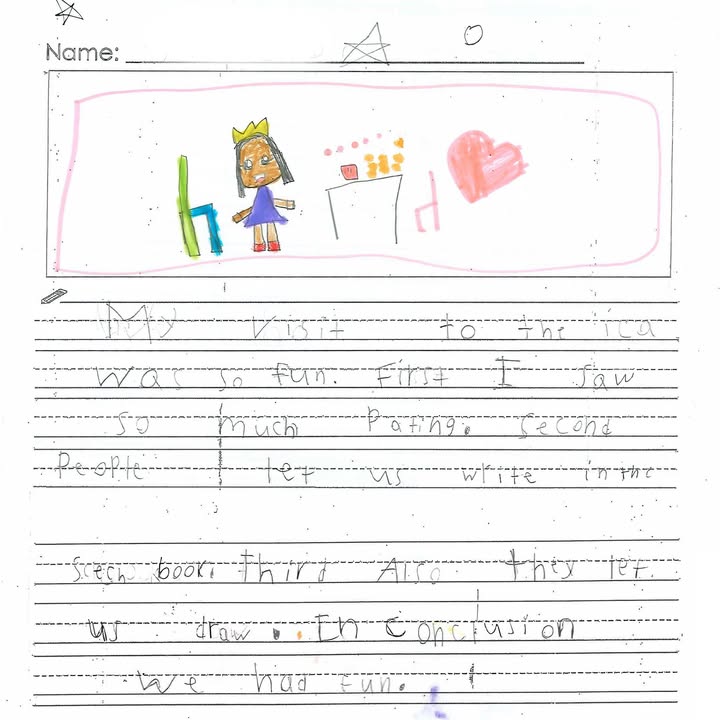 Name:
My visit to the ica
was so fun. First I saw
so much Pating. Second
People let us write in the
scech book. third Also they let
us draw. In conclusion
we had fun.